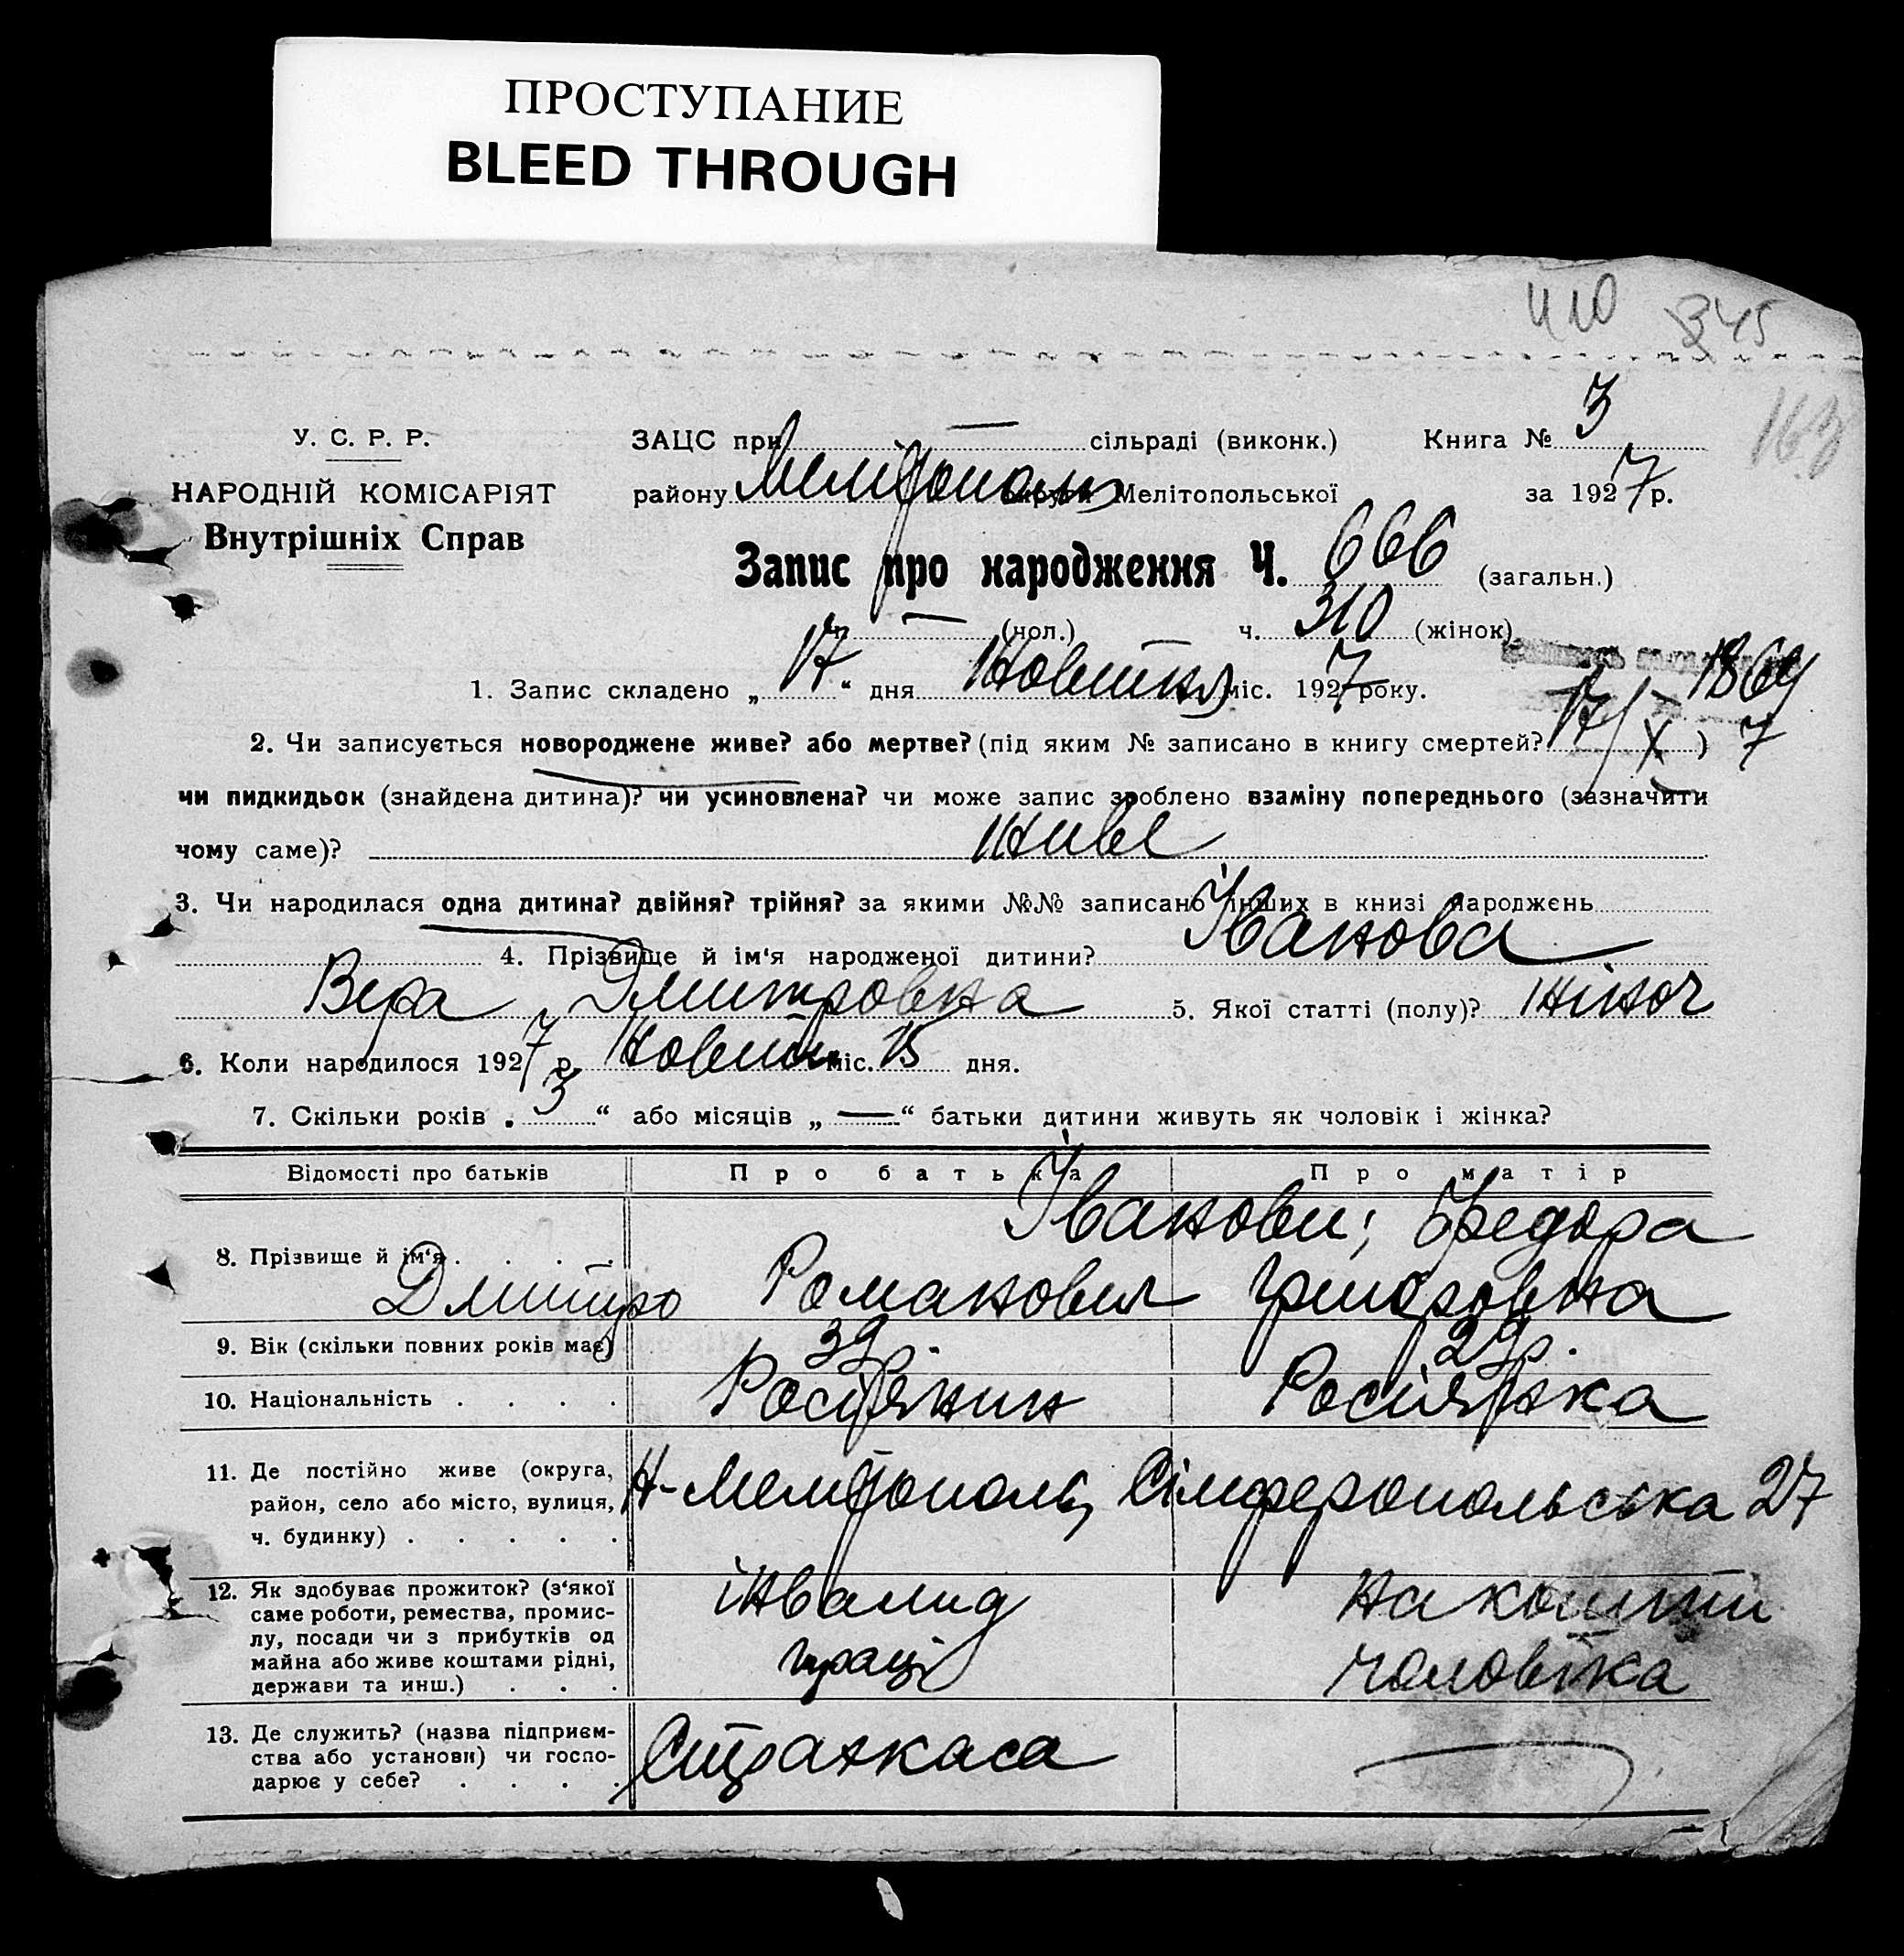 ПРОСТУПАНИЕ
BLEED THROUGH
410 345
163
У. С. Р. Р.
НАРОДНІЙ КОМІСАРІЯТ
Внутрішніх Справ
ЗАЦС при — сільраді (виконк.) Книга № 3
району Мелітополь округи Мелітопольської за 1927 р.
Запис про народження Ч. 666 (загальн.)
ч. — (чол.) ч. 310 (жінок)
1. Запис складено „ 17 “ дня Жовтня міс. 1927 року.
1869
17/X 7
2. Чи записується новороджене живе? або мертве? (під яким № записано в книгу смертей? )
чи пидкидьок (знайдена дитина)? чи усиновлена? чи може запис зроблено взаміну попереднього (зазначити
чому саме)? живе
3. Чи народилася одна дитина? двійня? трійня? за якими №№ записано інших в книзі народжень
4. Прізвище й ім‘я народженої дитини? Іванова
Вера Дмитровна 5. Якої статті (полу)? жіноч
6. Коли народилося 1927 р. Жовтн міс. 15 дня.
7. Скільки років „ 3 “ або місяців „ — “ батьки дитини живуть як чоловік і жінка?
Відомості про батьків Про батька Про матір
8. Прізвище й ім‘я . . . . Іванови; Федора
Дмитро Романович Григоровна
9. Вік (скільки повних років має) 39 29р.
10. Національність . . . . Росіянин Росіянка
11. Де постійно живе (округа,
район, село або місто, вулиця,
ч. будинку) . . . . .
Н-Мелітополь, Сімферопольська 27
12. Як здобуває прожиток? (з‘якої
саме роботи, ремества, промис-
лу, посади чи з прибутків од
майна або живе коштами рідні,
держави та инш.) . . .
інвалид
праці
на кошти
чоловіка
13. Де служить? (назва підприєм-
ства або установи) чи госпо-
дарює у себе? . . . .
Страхкаса